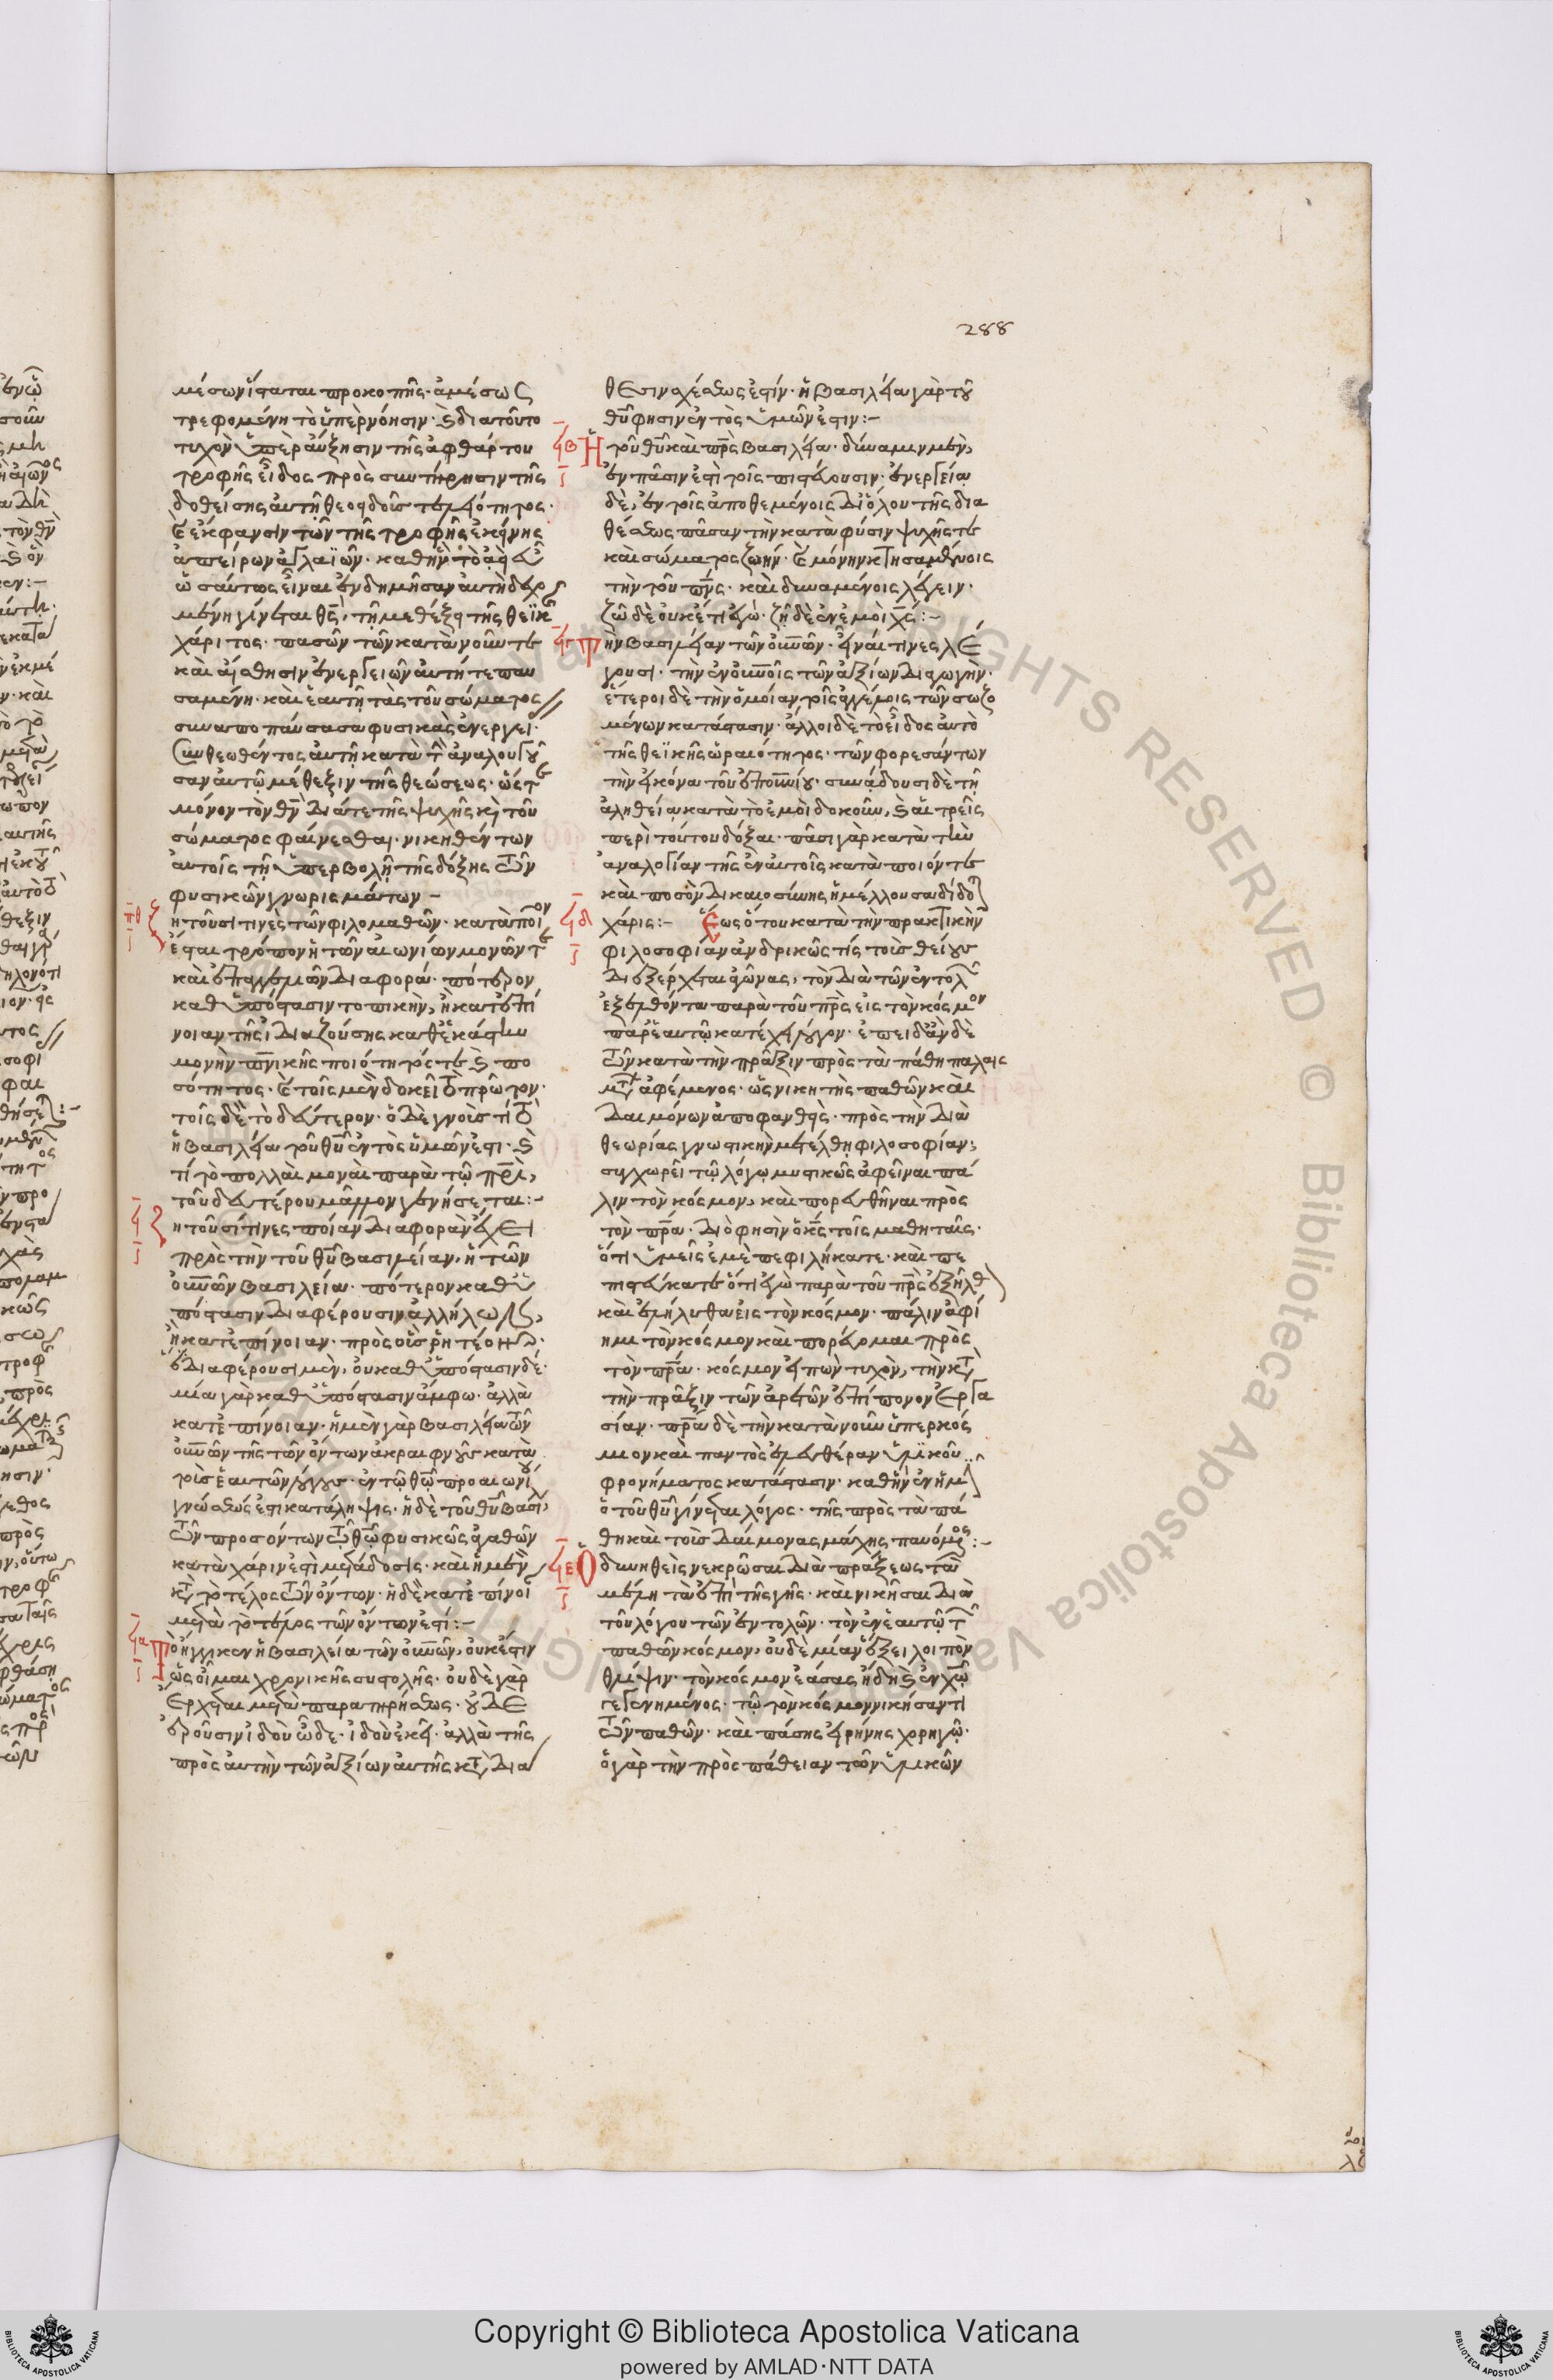 288
μέσων ἵσταται προκοπῆς· ἀμέσως
τρεφομένη τὸ ὑπὲρ νόησιν· καὶ διατοῦτο
τυχὸν ὑπὲρ αὔξησιν τῆς ἀφθάρτου
τροφῆς εἶδος πρὸς συντήρησιν τῆς
δοθείσης αὐτῆ θεοειδοῦς τελειότητος·
καὶ ἔκφανσιν τῶν τῆς τροφῆς ἐκείνης
ἀπείρων ἀγλαϊῶν· καθ' ἣν τὸ ἀεὶ εὖ
ὡσαύτως εἶναι ἐνδημῆσαν αὐτῆ δεχο
μένη γίνεται θς, τῆ μεθέξει τῆς θεϊκῆς
χάριτος· πασῶν τῶν κατὰ νοῦν τε
καὶ αἴσθησιν ἐνεργειῶν αὐτή τε παυ
σαμένη· καὶ ἑαυτῆ τὰς τοῦ σώματος
συναποπαύσασα φυσικὰς ἐνεργεί·
συνθεωθέντος αὐτῆ κατὰ τὴν ἀναλογοῦ
σαν αὐτῶ μέθεξιν τῆς θεώσεως· ὥστε
μόνον τὸν θν διά τε τῆς ψυχῆς κ τοῦ
σώματος φαίνεσθαι· νικηθέντων
αὐτοῖς τῆ ὑπερβολῆ τῆς δόξης τῶν
φυσικῶν γνωρισμάτων –
πθ ζητοῦσί τινες τῶν φιλομαθῶν· κατὰ ποῖον
ἔσται τρόπον ἡ τῶν αἰωνίων μονῶν τε
καὶ ἐπαγγελιῶν διαφορά· πότερον
καθ' ὑπόστασιν τοπικὴν, ἢ κατ' ἐπί
νοιαν τῆς ἰδιαζούσης καθ' ἑκάστην
μονὴν πνικῆς ποιότητός τε καὶ πο
σότητος· καὶ τοῖς μὲν δοκεῖ τὸ πρῶτον·
τοῖς δὲ τὸ δεύτερον· ὁ δὲ γνοὺς τί τὸ
ἡ βασιλεία τοῦ θυ ἐντὸς ὑμῶν ἐστι· καὶ
τί τὸ πολλαὶ μοναὶ παρὰ τῶ πρι,
τοῦ δευτέρου μᾶλλον γενήσεται:–
ϟ ζητοῦσί τινες ποίαν διαφορὰν ἔχει
πρὸς τὴν τοῦ θυ βασιλείαν, ἡ τῶν
οὐνῶν βασιλεία· πότερον καθ' ὑ
πόστασιν διαφέρουσιν ἀλλήλων,
ἢ κατ' ἐπίνοιαν· πρὸς οὓς ῥητέον·
ὅτι διαφέρουσι μὲν, οὐ καθ' ὑπόστασιν δέ·
μία γὰρ καθ' ὑπόστασιν ἄμφω· ἀλλὰ
κατ' ἐπίνοιαν· ἡ μὲν γὰρ βασιλεία τῶν
οὐνῶν τῆς τῶν ὄντων ἀκραιφνοῦς κατὰ
τοὺς ἑαυτῶν λόγους· ἐν τῶ θῶ προαιωνίου
γνώσεώς ἐστι κατάληψις· ἡ δὲ τοῦ θυ βασι,
τῶν προσόντων τῶ θῶ φυσικῶς ἀγαθῶν
κατὰ χάριν ἐστὶ μετάδοσις· καὶ ἡ μὲν
κτ τὸ τέλος τῶν ὄντων· ἡ δὲ κατ' ἐπίνοι
μετὰ τὸ τέλος τῶν ὄντων ἐστί:–
ϟα τὸ ἤγγικεν ἡ βασιλεία τῶν οὐνῶν, οὐκ ἔστιν
ὡς οἶμαι χρονικῆς συστολῆς· οὐδὲ γὰρ
ἔρχεται μετὰ παρατηρήσεως· οὐδὲ
ἐροῦσιν ἰδοὺ ὧδε· ἰδοὺ ἐκεῖ· ἀλλὰ τῆς
πρὸς αὐτὴν τῶν ἀξίων αὐτῆς κτ διά
θεσιν σχέσεως ἐστίν· ἡ βασιλεία γὰρ τοῦ
θυ φησιν ἐντὸς ὑμῶν ἐστιν:–
ϟβ Ἡ τοῦ θυ καὶ πρς βασιλεία· δύναμιν μὲν,
ἐν πᾶσιν ἐστὶ τοῖς πιστεύουσιν· ἐνεργεία
δὲ, ἐν τοῖς ἀποθεμένοις δι' ὅλου τῆς δια
θέσεως πᾶσαν τὴν κατὰ φύσιν ψυχῆς τε
καὶ σώματος ζωήν· καὶ μόνην κτησαμένοις
τὴν τοῦ πνς· καὶ δυναμένοις λέγειν·
ζῶ δὲ οὐκέτι ἐγώ· ζῆ δὲ ἐν ἐμοὶ χς:–
ϟγ Τὴν βασιλείαν τῶν οὐνῶν· εἶναί τινες λέ
γουσι· τὴν ἐν οὐνοῖς τῶν ἀξίων διαγωγήν·
ἕτεροι δὲ τὴν ὁμοίαν τοῖς ἀγγέλοις τῶν σωζο
μένων κατάστασιν· ἄλλοι δὲ τὸ εἶδος αὐτὸ
τῆς θεϊκῆς ὡραιότητος· τῶν φορεσάντων
τὴν εἰκόνα τοῦ ἐπουνίου· συνάδουσι δὲ τῆ
ἀληθεία κατὰ τὸ ἐμοὶ δοκοῦν, καὶ αἱ τρεῖς
περὶ τούτου δόξαι· πᾶσι γὰρ κατὰ τὴν
ἀναλογίαν τῆς ἐν αὐτοῖς κατὰ ποιόν τε
καὶ ποσὸν δικαιοσύνης ἡ μέλλουσα δίδο
ϟδ χάρις:– Ἕως ὅτου κατὰ τὴν πρακτικὴν
φιλοσοφίαν ἀνδρικῶς τίς τοὺς θείους
διεξέρχεται ἀγῶνας, τὸν διὰ τῶν ἐντολῶν
ἐξελθόντα παρὰ τοῦ πρς εἰς τὸν κόσμον
παρ' ἑαυτῶ κατέχει λόγον· ἐπειδὰν δὲ
τῶν κατὰ τὴν πρᾶξιν πρὸς τὰ πάθη παλαισ
μάτων ἀφέμενος· ὡς νικητὴς παθῶν καὶ
δαιμόνων ἀποφανθεὶς· πρὸς τὴν διὰ
θεωρίας γνωστικὴν μετέλθη φιλοσοφίαν,
συγχωρεῖ τῶ λόγω μυστικῶς ἀφεῖναι πά
λιν τὸν κόσμον, καὶ πορευθῆναι πρὸς
τὸν πρα· διὸ φησὶν ὁ κς τοῖς μαθηταῖς·
ὅτι ὑμεῖς ἐμὲ πεφιλήκατε· καὶ πε
πιστεύκατε ὅτι ἐγὼ παρὰ τοῦ πρς ἐξῆλθ
καὶ ἐλήλυθα εἰς τὸν κόσμον· πάλιν ἀφί
ημι τὸν κόσμον καὶ πορεύομαι πρὸς
τὸν πρα· κόσμον εἰπὼν τυχὸν, τὴν κτ
τὴν πρᾶξιν τῶν ἀρετῶν ἐπίπονον ἐργα
σίαν· πρα δὲ τὴν κατὰ νοῦν ὑπερκόσ
μιον καὶ παντὸς ἐλευθέραν ὑλικοῦ
φρονήματος κατάστασιν· καθ' ἣν ἐν ἡμῖν
ὁ τοῦ θυ γίνεται λόγος· τῆς πρὸς τὰ πά
θη καὶ τοὺς δαίμονας μάχης παυόμενος:–
ϟε Ὁ δυνηθεὶς νεκρῶσαι διὰ πράξεως τὰ
μέλη τὰ ἐπὶ τῆς γῆς· καὶ νικῆσαι διὰ
τοῦ λόγου τῶν ἐντολῶν· τὸν ἐν ἑαυτῶ τῶν
παθῶν κόσμον, οὐδὲ μίαν ἕξει λοιπὸν
θλίψιν· τὸν κόσμον ἐάσας ἤδη καὶ ἐν χῶ
γεγενημένος· τῶ τὸν κόσμον νικήσαντι
τῶν παθῶν· καὶ πάσης εἰρήνης χορηγῶ·
ὁ γὰρ τὴν πρὸς πάθειαν τῶν ὑλικῶν
ALL RIGHTS RESERVED © Biblioteca Apostolica Vaticana
Copyright © Biblioteca Apostolica Vaticana
powered by AMLAD·NTT DATA
BIBLIOTECA APOSTOLICA VATICANA
BIBLIOTECA APOSTOLICA VATICANA